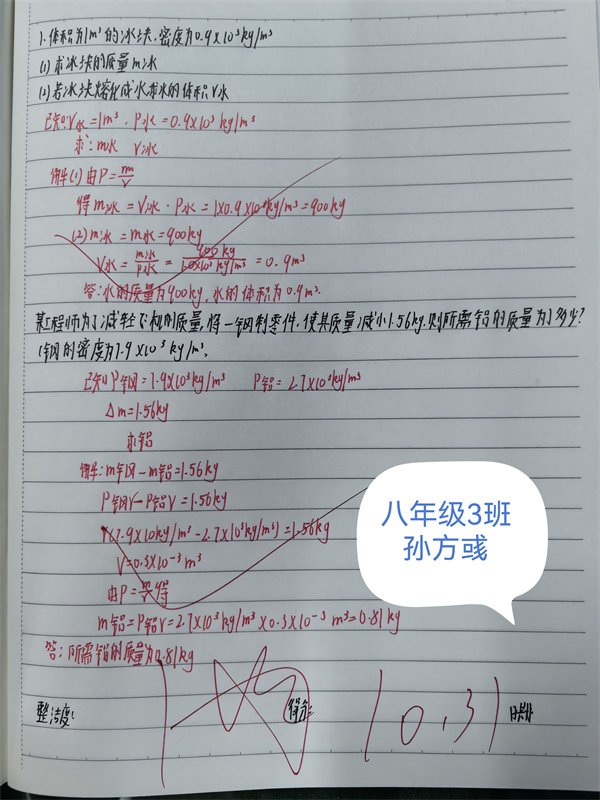 1.体积为1m³的冰块,密度为0.9×10³kg/m³
(1)求冰块的质量m冰
(2)若冰块熔化成水求水的体积V水
已知:V冰=1m³,ρ冰=0.9×10³kg/m³
求:m冰 V冰
解(1)由ρ=m/V
得m冰=V冰·ρ冰=1×0.9×10³kg/m³=900kg
(2)m冰=m水=900kg
V水=m水/ρ水=900kg/1.0×10³kg/m³=0.9m³
答:冰的质量为900kg,水的体积为0.9m³.
某工程师为了减轻飞机的质量,将一钢制零件,使其质量减小1.56kg.则所需铝的质量为了多少?
(钢的密度为7.9×10³kg/m³,
已知ρ钢=7.9×10³kg/m³ ρ铝=2.7×10³kg/m³
Δm=1.56kg
求铝
解:m钢-m铝=1.56kg
ρ钢V-ρ铝V=1.56kg
V(7.9×10kg/m³-2.7×10³kg/m³)=1.56kg
V=0.3×10⁻³m³
由ρ=m/V得
m铝=ρ铝V=2.7×10³kg/m³×0.3×10⁻³m³=0.81kg
答:所需铝的质量为0.81kg
整洁度: 得分: 10.31 日期
八年级3班
孙方彧